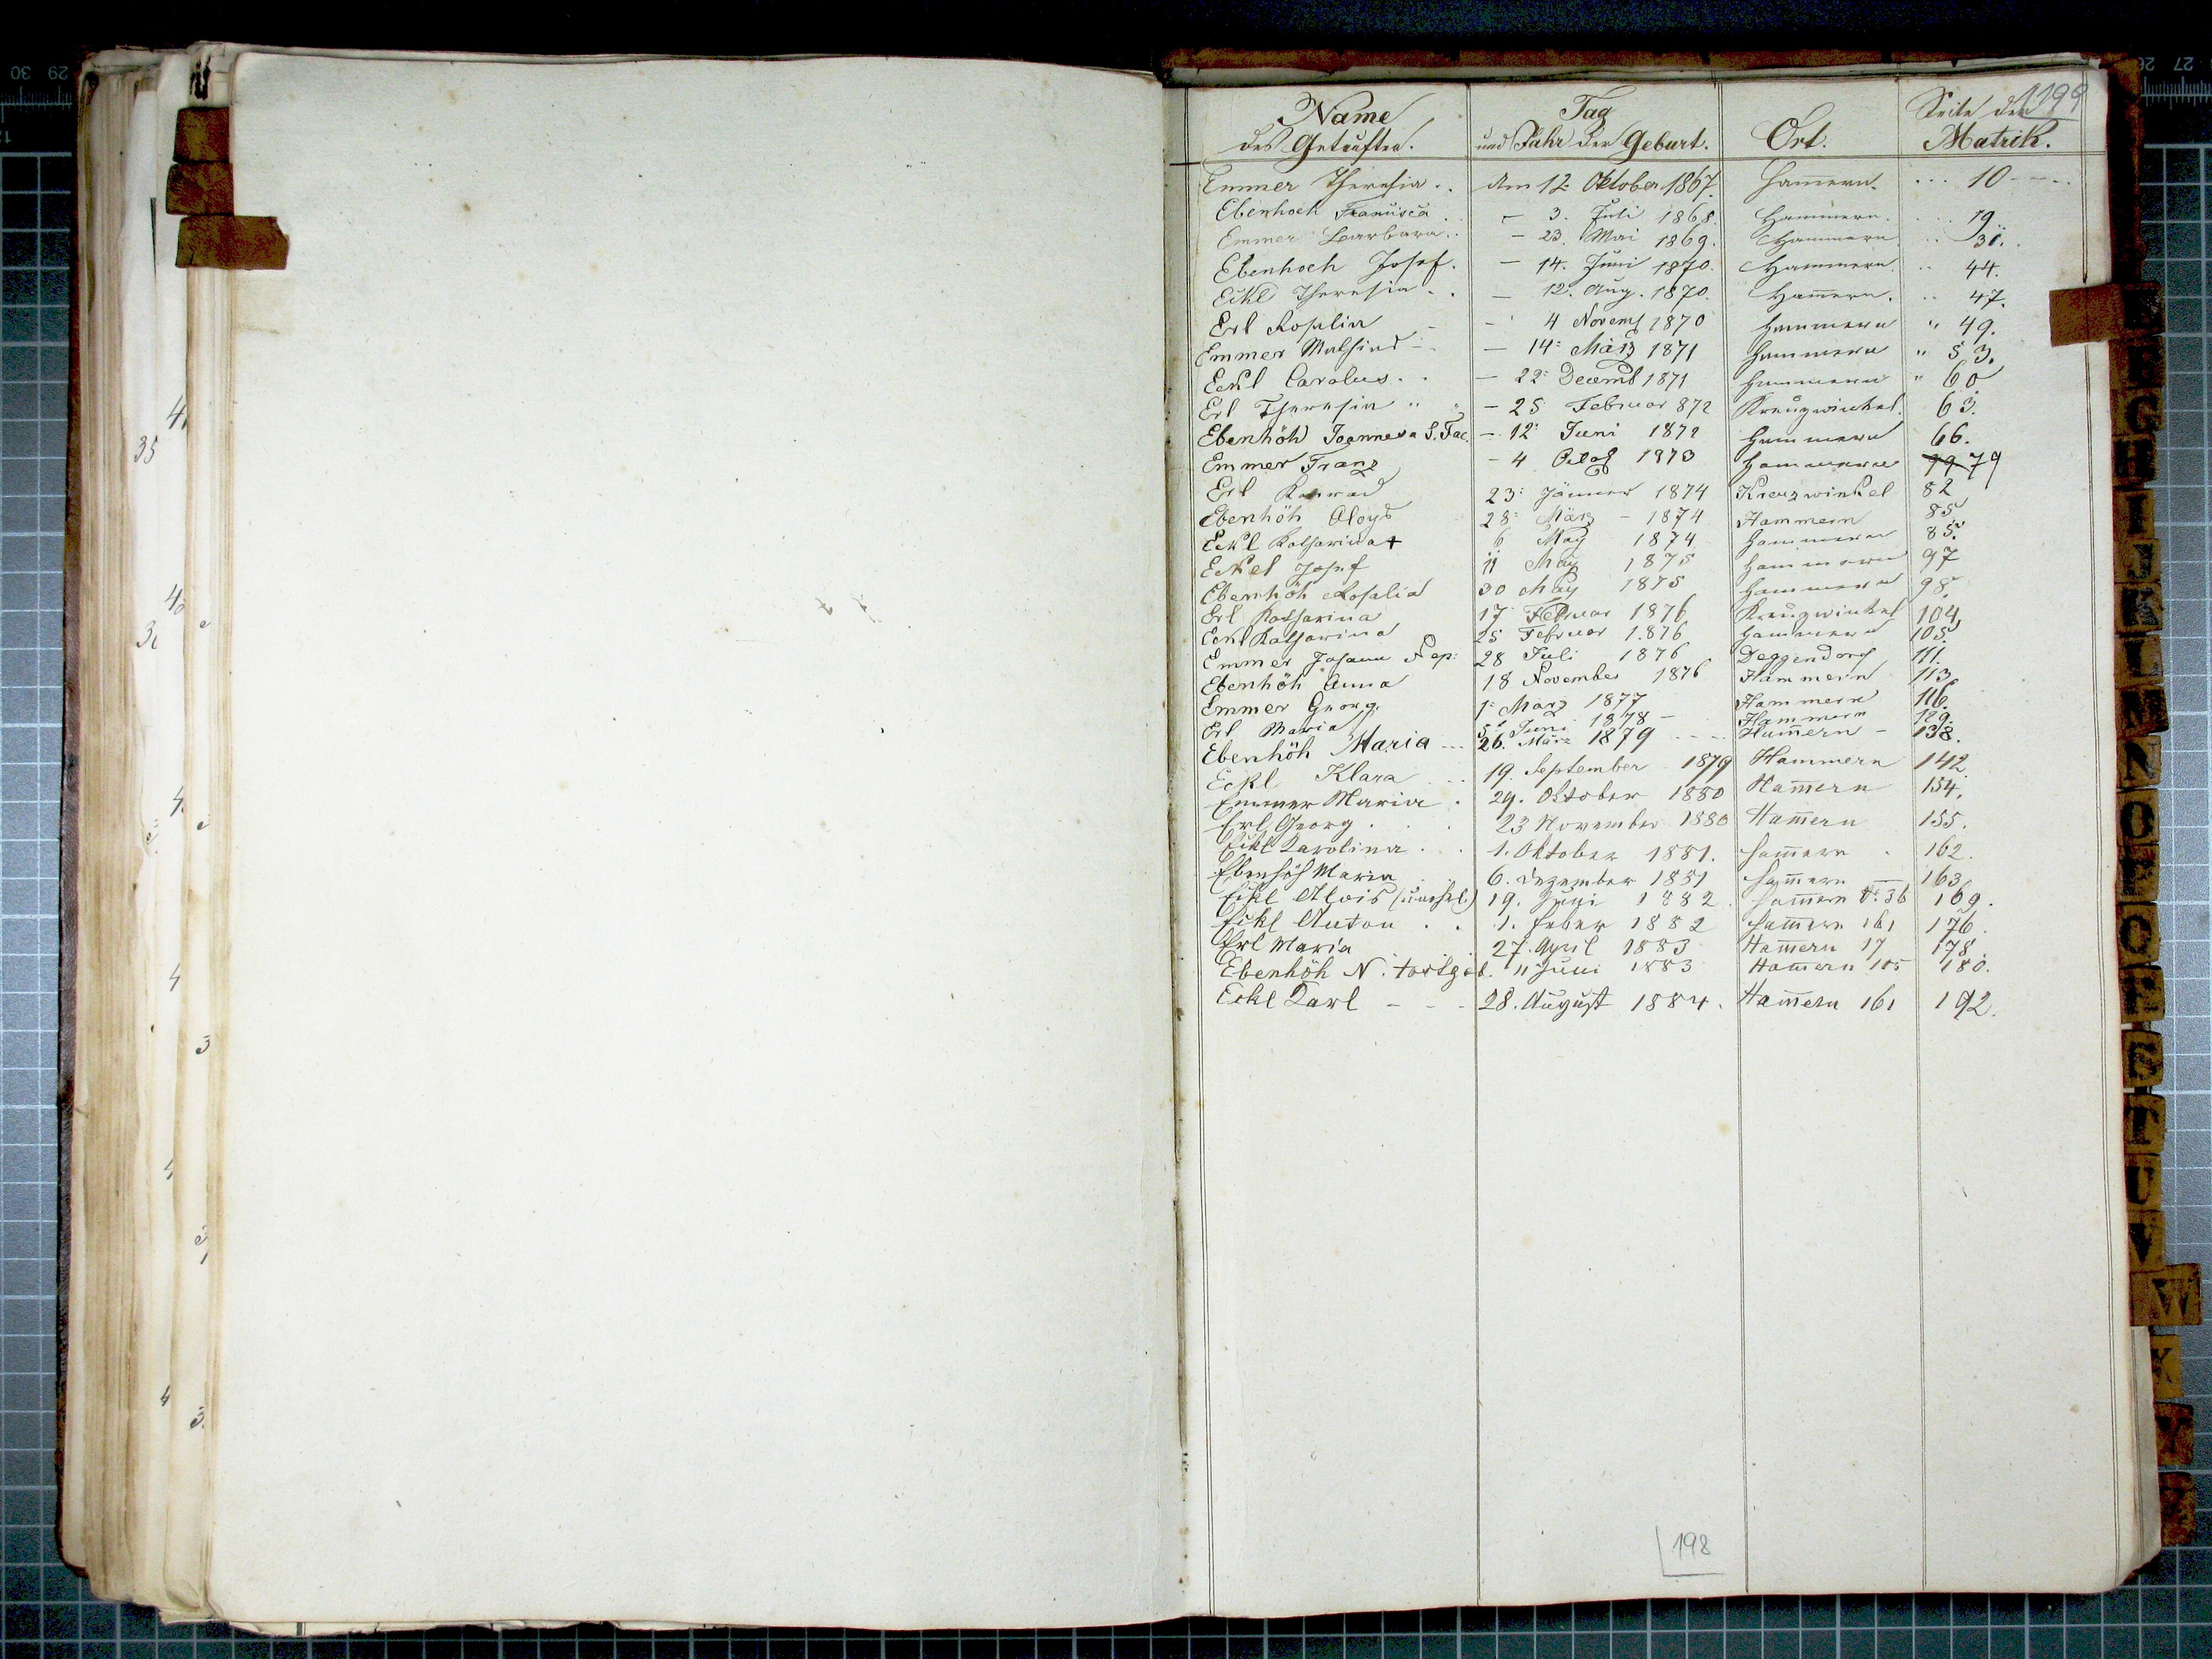 199
Name Tag Seite der
des Getauften. und Jahr der Geburt. Ort. Matrik.
Emmer Theresia .. Am 12. Oktober 1867. Ham̄ern. ... 10 ----
Ebenhoch Francisca . - 3. Juli 1868. Hammern. ... 19.
Emmer Barbara .. - 23. Mai 1869. Hammern .. 31.
Ebenhoch Josef. - 14. Juni 1870. Hammern. .. 44.
Eckl Theresia .. - 12. Aug. 1870. Ham̄ern. .. 47.
Erl Rosalia - - 4 Novemb 1870 Hammern " 49.
Emmer - 14. März 1871 Hammern " 53.
Eckl Carolus .. - 22. Decemb 1871 Hammern " 60
Erl Theresia " " - 25 Februar 872 Kreuzwinkel. 63.
Ebenhöh Joannes a S. Fac. - 12. Juni 1872 Hammern 66.
Emmer Franz - 4 Octob 1873 Hammern 79
Erl Konrad 23. Jänner 1874 Kreuzwinkel 82
Ebenhöh Aloys 28. März - 1874 Hammern 85
Eckl Katharina + 6 May 1874 Hammern 85.
Eckel Josef 11 May 1875 Hammern 97
Ebenhöh Rosalia 30 May 1875 Hammern 98.
Erl Katharina 17 Februar 1876 Kreuzwinkel 104
Eckl Katharina 25 Februar 1876 Hammern 105.
Emmer Johann Nep: 28 Juli 1876 Deggendorf 111.
Ebenhöh Anna 18 November 1876 Hammern 113
Emmer Georg. 1. März 1877 Hammern 116.
Erl Maria 5. Juni 1878 - Hammern 129.
Ebenhöh Maria ... 26. März 1879 .... Ham̄ern - 138.
Eckl Klara ... 19. September 1879 Hammern 142.
Emmer Maria . 29. Oktober 1880 Ham̄ern 154.
Erl Georg . . . 23 November 1880 Ham̄ern 155.
Eckl Karolina . . 1. Oktober 1881. Ham̄ern . 162.
Ebenhöh Maria 6. Dezember 1881 Ham̄ern 163
Eckl Alois (unehel.) 19. Juni 1882. Ham̄ern N: 36 169.
Eckl Anton . . 1. Feber 1882 Ham̄ern 161 176.
Erl Maria 27. April 1883 Ham̄ern 17 178.
Ebenhöh N. todtgeb. 11 Juni 1883 Ham̄ern 105 180.
Eckl Karl - - - 28. August 1884. Ham̄ern 161 192.
198